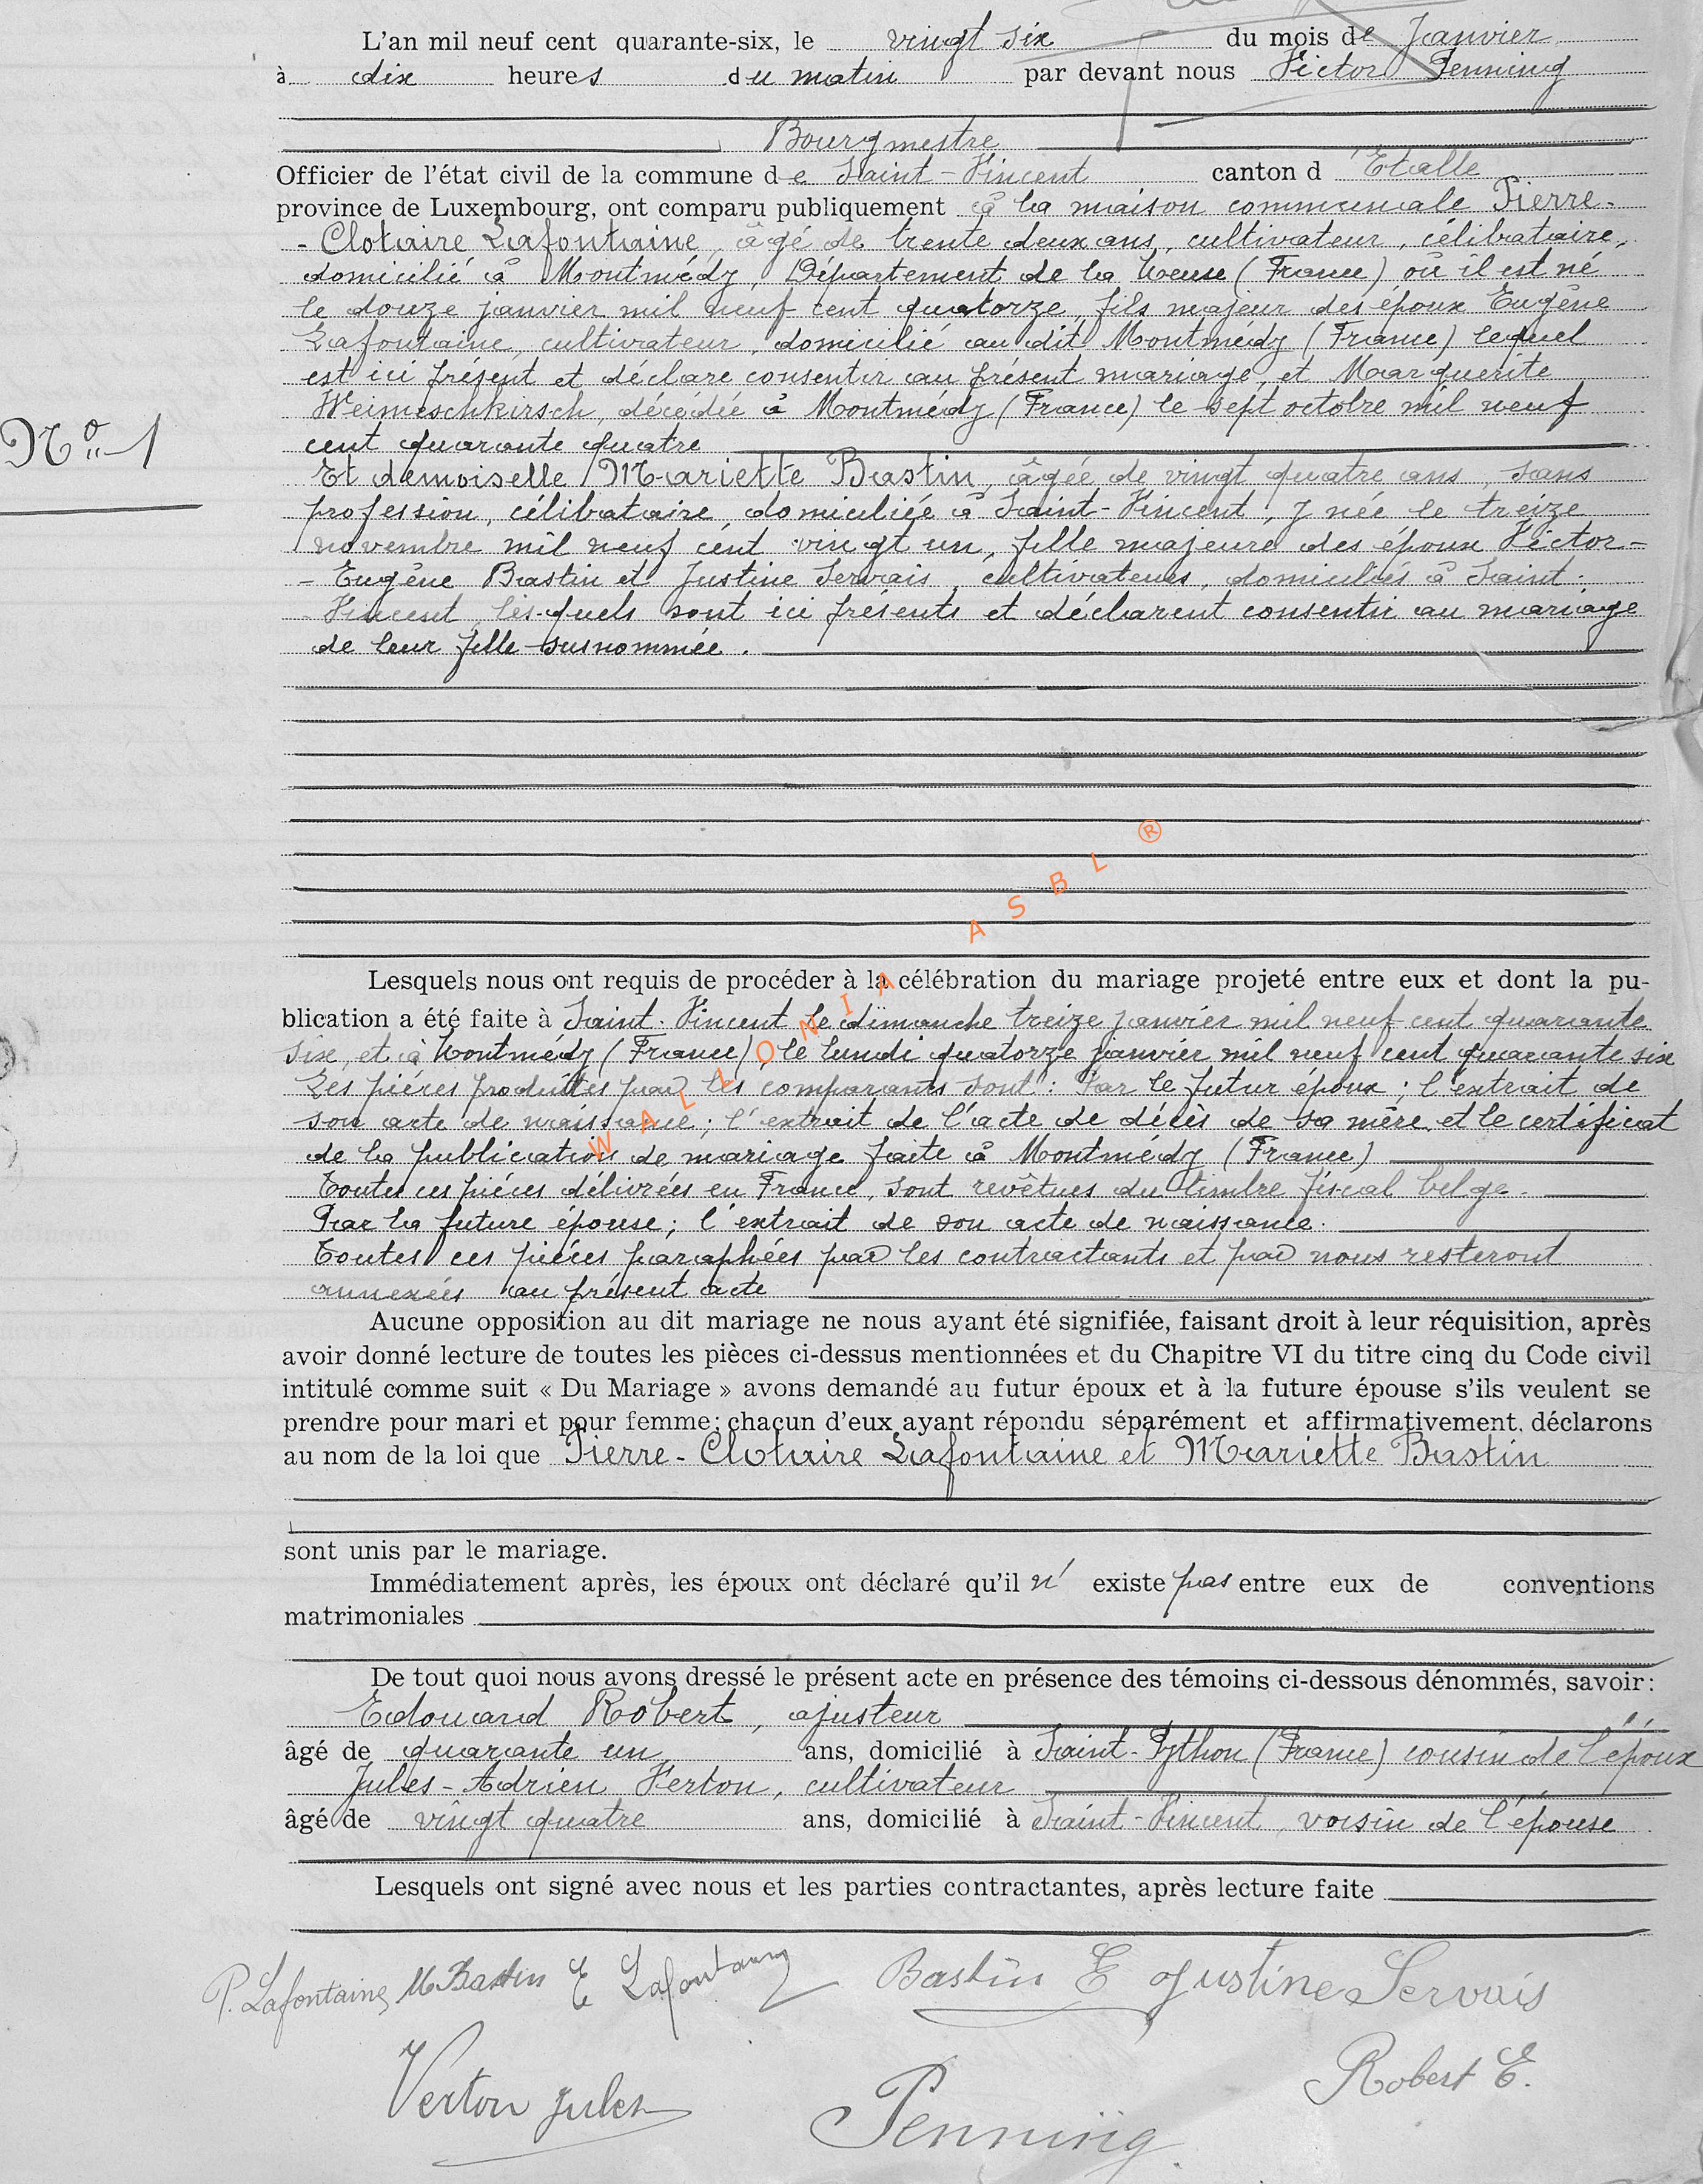 L'an mil neuf cent quarante-six, le vingt six du mois de Janvier
à dix heures du matin par devant nous Victor Penning
Bourgmestre
Officier de l'état civil de la commune de Saint-Vincent canton d'Etalle
province de Luxembourg, ont comparu publiquement à la maison communale Pierre-
-Clotaire Lafontaine, âgé de trente deux ans, cultivateur, célibataire,
domicilié à Montmédy, Département de la Meuse (France) où il est né
le douze janvier mil neuf cent quatorze, fils majeur des époux Eugène
Lafontaine, cultivateur, domicilié au dit Montmédy (France) lequel
est ici présent et déclare consentir au présent mariage, et Marguerite
Weimeschkirsch, décédée à Montmédy (France) le sept octobre mil neuf
cent quarante quatre
No 1
Et demoiselle Mariette Bastin, âgée de vingt quatre ans, sans
profession, célibataire, domiciliée à Saint-Vincent, y née le treize
novembre mil neuf cent vingt un, fille majeure des époux Victor-
-Eugène Bastin et Justine Servais, cultivateurs, domiciliés à Saint-
-Vincent, les-quels sont ici présents et déclarent consentir au mariage
de leur fille susnommée.
Lesquels nous ont requis de procéder à la célébration du mariage projeté entre eux et dont la pu-
blication a été faite à Saint-Vincent le dimanche treize janvier mil neuf cent quarante
six, et à Montmédy (France), le lundi quatorze janvier mil neuf cent quarante six
Les pièces produites par les comparants sont: Par le futur époux; l'extrait de
son acte de naissance; l'extrait de l'acte de décès de sa mère, et le certificat
de la publication de mariage faite à Montmédy (France)
Toutes ces pièces délivrées en France, sont revêtues du timbre fiscal belge.
Par la future épouse; l'extrait de son acte de naissance.
Toutes ces pièces paraphées par les contractants et par nous resteront
annexées au présent acte
WALLONIA ASBL ®
Aucune opposition au dit mariage ne nous ayant été signifiée, faisant droit à leur réquisition, après
avoir donné lecture de toutes les pièces ci-dessus mentionnées et du Chapitre VI du titre cinq du Code civil
intitulé comme suit « Du Mariage » avons demandé au futur époux et à la future épouse s'ils veulent se
prendre pour mari et pour femme; chacun d'eux ayant répondu séparément et affirmativement, déclarons
au nom de la loi que Pierre-Clotaire Lafontaine et Mariette Bastin
sont unis par le mariage.
Immédiatement après, les époux ont déclaré qu'il n' existe pas entre eux de conventions
matrimoniales
De tout quoi nous avons dressé le présent acte en présence des témoins ci-dessous dénommés, savoir:
Edouard Robert, ajusteur
âgé de quarante un ans, domicilié à Saint-Python (France) cousin de l'époux
Jules-Adrien Verton, cultivateur
âgé de vingt quatre ans, domicilié à Saint-Vincent, voisin de l'épouse
Lesquels ont signé avec nous et les parties contractantes, après lecture faite
P. Lafontaine M Bastin E Lafontaine Bastin E Justine Servais
Verton Jules Penning Robert E.